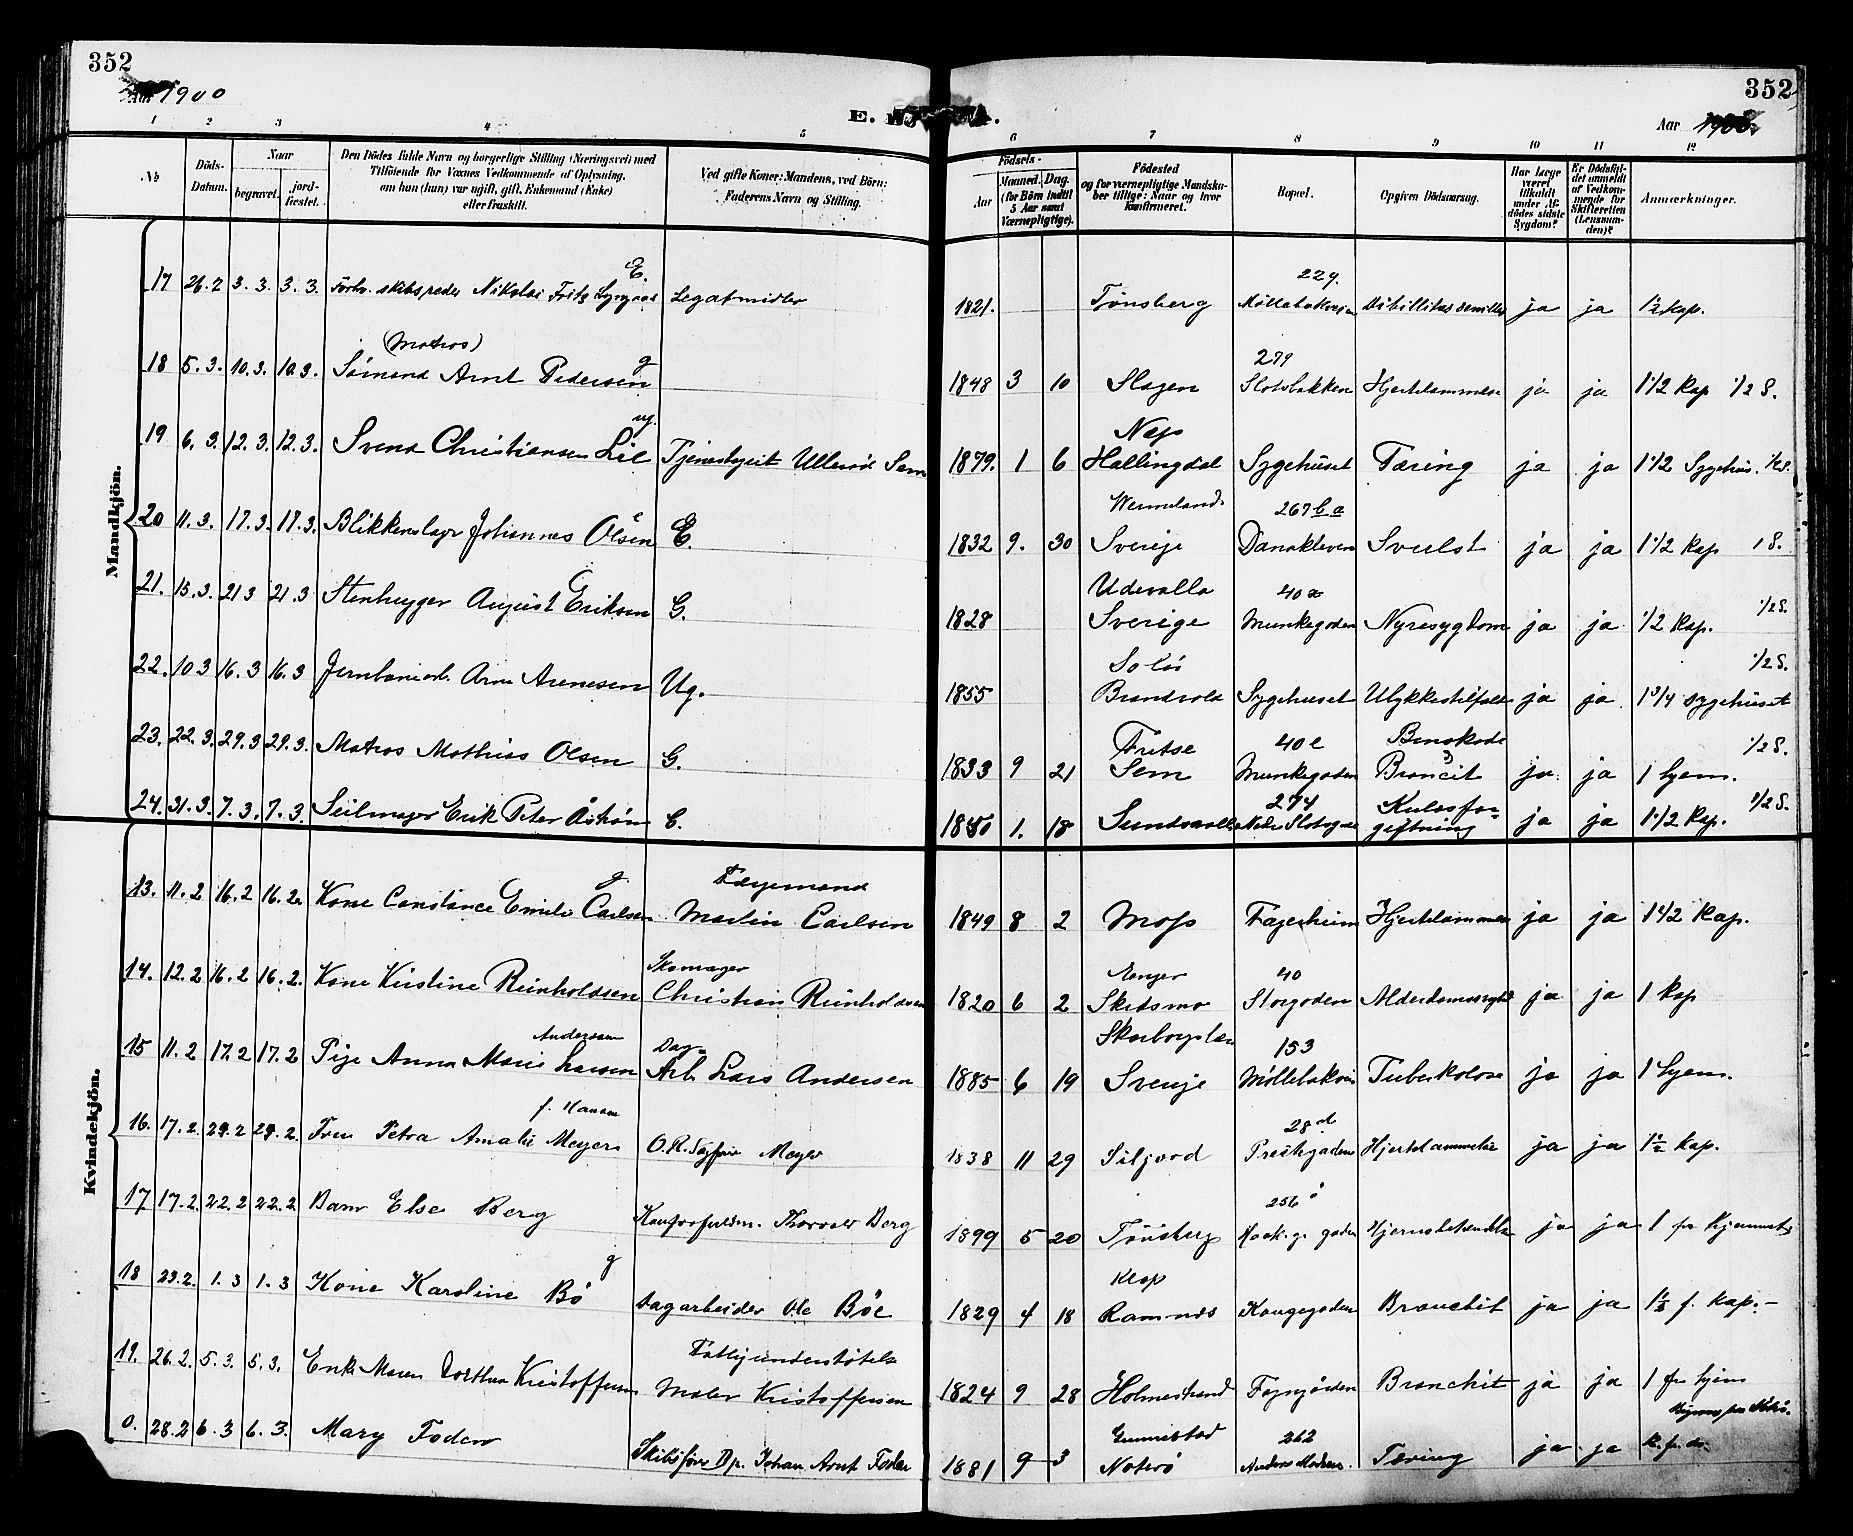 352
352
1900
E.
Aar
1 2 3 4 5 6 7 8 9 10 11 12
No
Döds-Datum.
Naar
begravet.
jord-fæstet.
Den Dödes fulde Navn og borgerlige Stilling (Næringsvei) med
Tilföiende for Voxnes Vedkommende af Oplysning,
om han (hun) var ugift, gift, Enkemand (Enke)
eller fraskilt.
Ved gifte Koner: Mandens, ved Börn:
Faderens Navn og Stilling.
Födsels-
Aar
Maaned. Dag.
(for Börn indtil
5 Aar samt
Værnepligtige).
Födested
og for værnepligtige Mandska-
ber tillige: Naar og hvor
konfirmeret.
Bopæl.
Opgiven Dödsaarsag.
Har Læge
været
tilkaldt
under Af-
dödes sidste
Sygdom?
Er Dödsfal-
det anmeldt
af Vedkom-
mende for
Skifteretten
(Lensman-
den)?
Anmærkninger.
Mandkjön.
17 26.2 3.3. 3.3. Forhv. skibsreder Nikolai Fritz E. Legatmidler 1821. Tönsberg 229. ja ja 1½ Kap.
18 5.3. 10.3. 10.3. (Matros) Sömand Arnt Pedersen g 1848 3 10 Slagen 279 Slotsbakken Hjertelammelse ja ja 1 1/2 Kap 1/2 S.
19 6.3. 12.3. 12.3. Svend Christiansen Lie ug. Sem 1879. 1 6 Næs Hallingdal Sygehuset Tæring ja ja 1 1/2 Sygehus.
20 11.3. 17.3. 17.3. Blikkenslager Johannes Olsen E. 1832 9. 30 Wermeland Sverige 267 b a Svulst ja ja 1 1/2 Kap 1 S.
21. 15.3. 21 3 21.3 Stenhugger August Eriksen G. 1828 Udevalla Sverige 40 a Munkegaden Nyresygdom ja ja 1/2 Kap. 1/2 S.
22. 10 3 16.3 16.3 Jernbanearb. Arne Arnesen Ug. 1855 Solör Brandvold Sygehuset Ulykkestilfælde ja ja 1 3/4 sygehuset 1/2 S.
23. 22.3. 29.3 29.3. Matros Mathias Olsen G. 1833 9 21 Fritse Sem 40 e Munkegaden Benskade Broncit ja ja 1 hjem. 1/2 S.
24. 31.3. 7.3. 7.3. Seilmager Erik Peter Åström 1840 1. 18 Sundsvall 274 Nedre Kulosfor-giftning ja ja 1 1/2 Kap. 1/2 S.
Kvindekjön.
13. 11.2 16.2 16.2 Kone Constance Emilie Carlsen g. Færgemand Martin Carlsen 1849 8 2 Moss Fagerheim Hjertelammelse ja ja 1 1/2 Kap.
14. 12.2 16.2 16.2. Kone Kirstine Reinholdsen Skomager Christian Reinholdsen 1820 6 2 Skedsmo 40 Storgaden ja ja 1 Kap
15 11.2 17.2 17.2 Pige Anna Marie Larsen Andersen Dag- Arb. Lars Andersen 1885 6 19 Skarborglän Sverige 153 Möllebakken Tuberkolose ja ja 1 hjem.
16. 17.2. 24.2 24.2. Fru Petra Amalie Meyer f. Hansen O.R. Sagfører Meyer 1838 11 29 Siljord 28 d Prestegaden Hjertelammelse ja ja 1½ Kap.
17 17.2. 22.2 22.2 Barn Else Berg Kontorfuldm. Thorvald Berg 1899 5 20 Tönsberg 256 Hjernebetændelse ja ja 1 fra Hjemmet
18 23.2. 1.3 1.3 Kone Karoline Bö g Dagarbeider Ole Böe 1829 4 18 Klop Ramnæs Kongegaden Bronchit ja ja 1½ f. Kap.-
19. 26.2. 5.3. 5.3. Enke Maren Dorthea Kristoffersen Fattigunderstötels Maler Kristoffersen 1824 9 28 Holmestrand Bronchit ja ja 1 fra hjem
0. 28.2 6.3 6.3. Mary Foden Skibsförer Dp. Johan Arnt Foden 1881 9 3 Gunnestad Noterö 262 Anders Madsens. Tæring ja ja